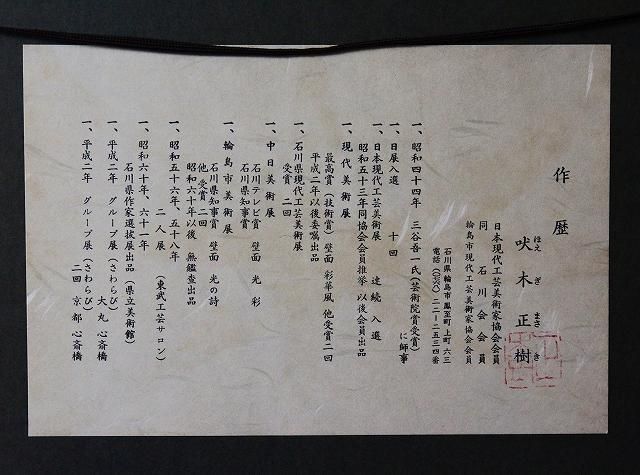 作歴
吠木正樹
ほえ ぎ まさ き
日本現代工芸美術家協会会員
同 石川会会員
輪島市現代工芸美術家協会会員
石川県輪島市鳳至町上町六三
電話(〇七六八)二二ー二五三四番
一、昭和四十四年 三谷吾一氏(芸術院賞受賞)
に師事
一、日展入選 十回
一、日本現代工芸美術展 連続入選
昭和五十三年同協会会員推挙 以後会員出品
一、現代美術展
最高賞(技術賞)壁面 彩華風 他受賞二回
平成二年以後委嘱出品
一、石川県現代工芸美術展
受賞 二回
一、中日美術展
石川テレビ賞 壁面 光彩
石川県知事賞
一、輪島市美術展
石川県知事賞 壁面 光の詩
他受賞二回
昭和六十年以後 無鑑査出品
一、昭和五十六年、五十八年
二人展 (東武工芸サロン)
一、昭和六十年、六十一年
石川県作家選抜展出品(県立美術館)
一、平成二年 グループ展(さわらび)
大丸心斎橋
一、平成二年 グループ展(さわらび)
二回 京都心斎橋